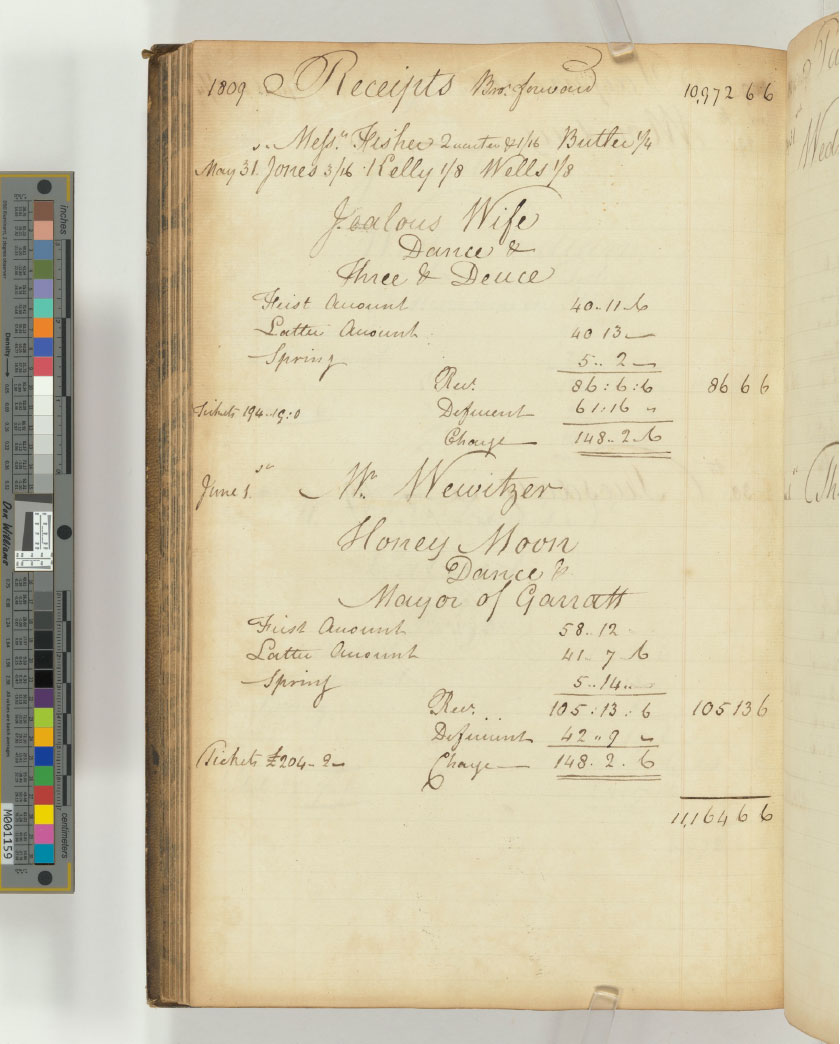 1809 Receipts Bro.t forward 10,972 6 6
Mess.rs Fisher 2 quarters & 1/16 Butler 1/4
May 31. Jones 3/16 Kelly 1/8 Wells 1/8
Jealous Wife
Dance &
Three & Deuce
First Account 40 .. 11 .. 6
Latter Account 40 13 —
Spring 5 .. 2 —
Rec. 86 : 6 : 6 86 6 6
Tickets 194 .. 19 : 0 Deficient 61 : 16 "
Charge — 148 .. 2 .. 6
June 1.st Mr. Wewitzer
Honey Moon
Dance &
Mayor of Garratt
First Account 58 .. 12
Latter Account 41 .. 7 .. 6
Spring 5 .. 14 ..
Rec. 105 : 13 : 6 105 13 6
Deficient 42 " 9 —
Tickets £204 - 2 — Charge — 148 . 2 . 6
11,164 6 6
inches
Density
Don Williams
centimeters
M001159